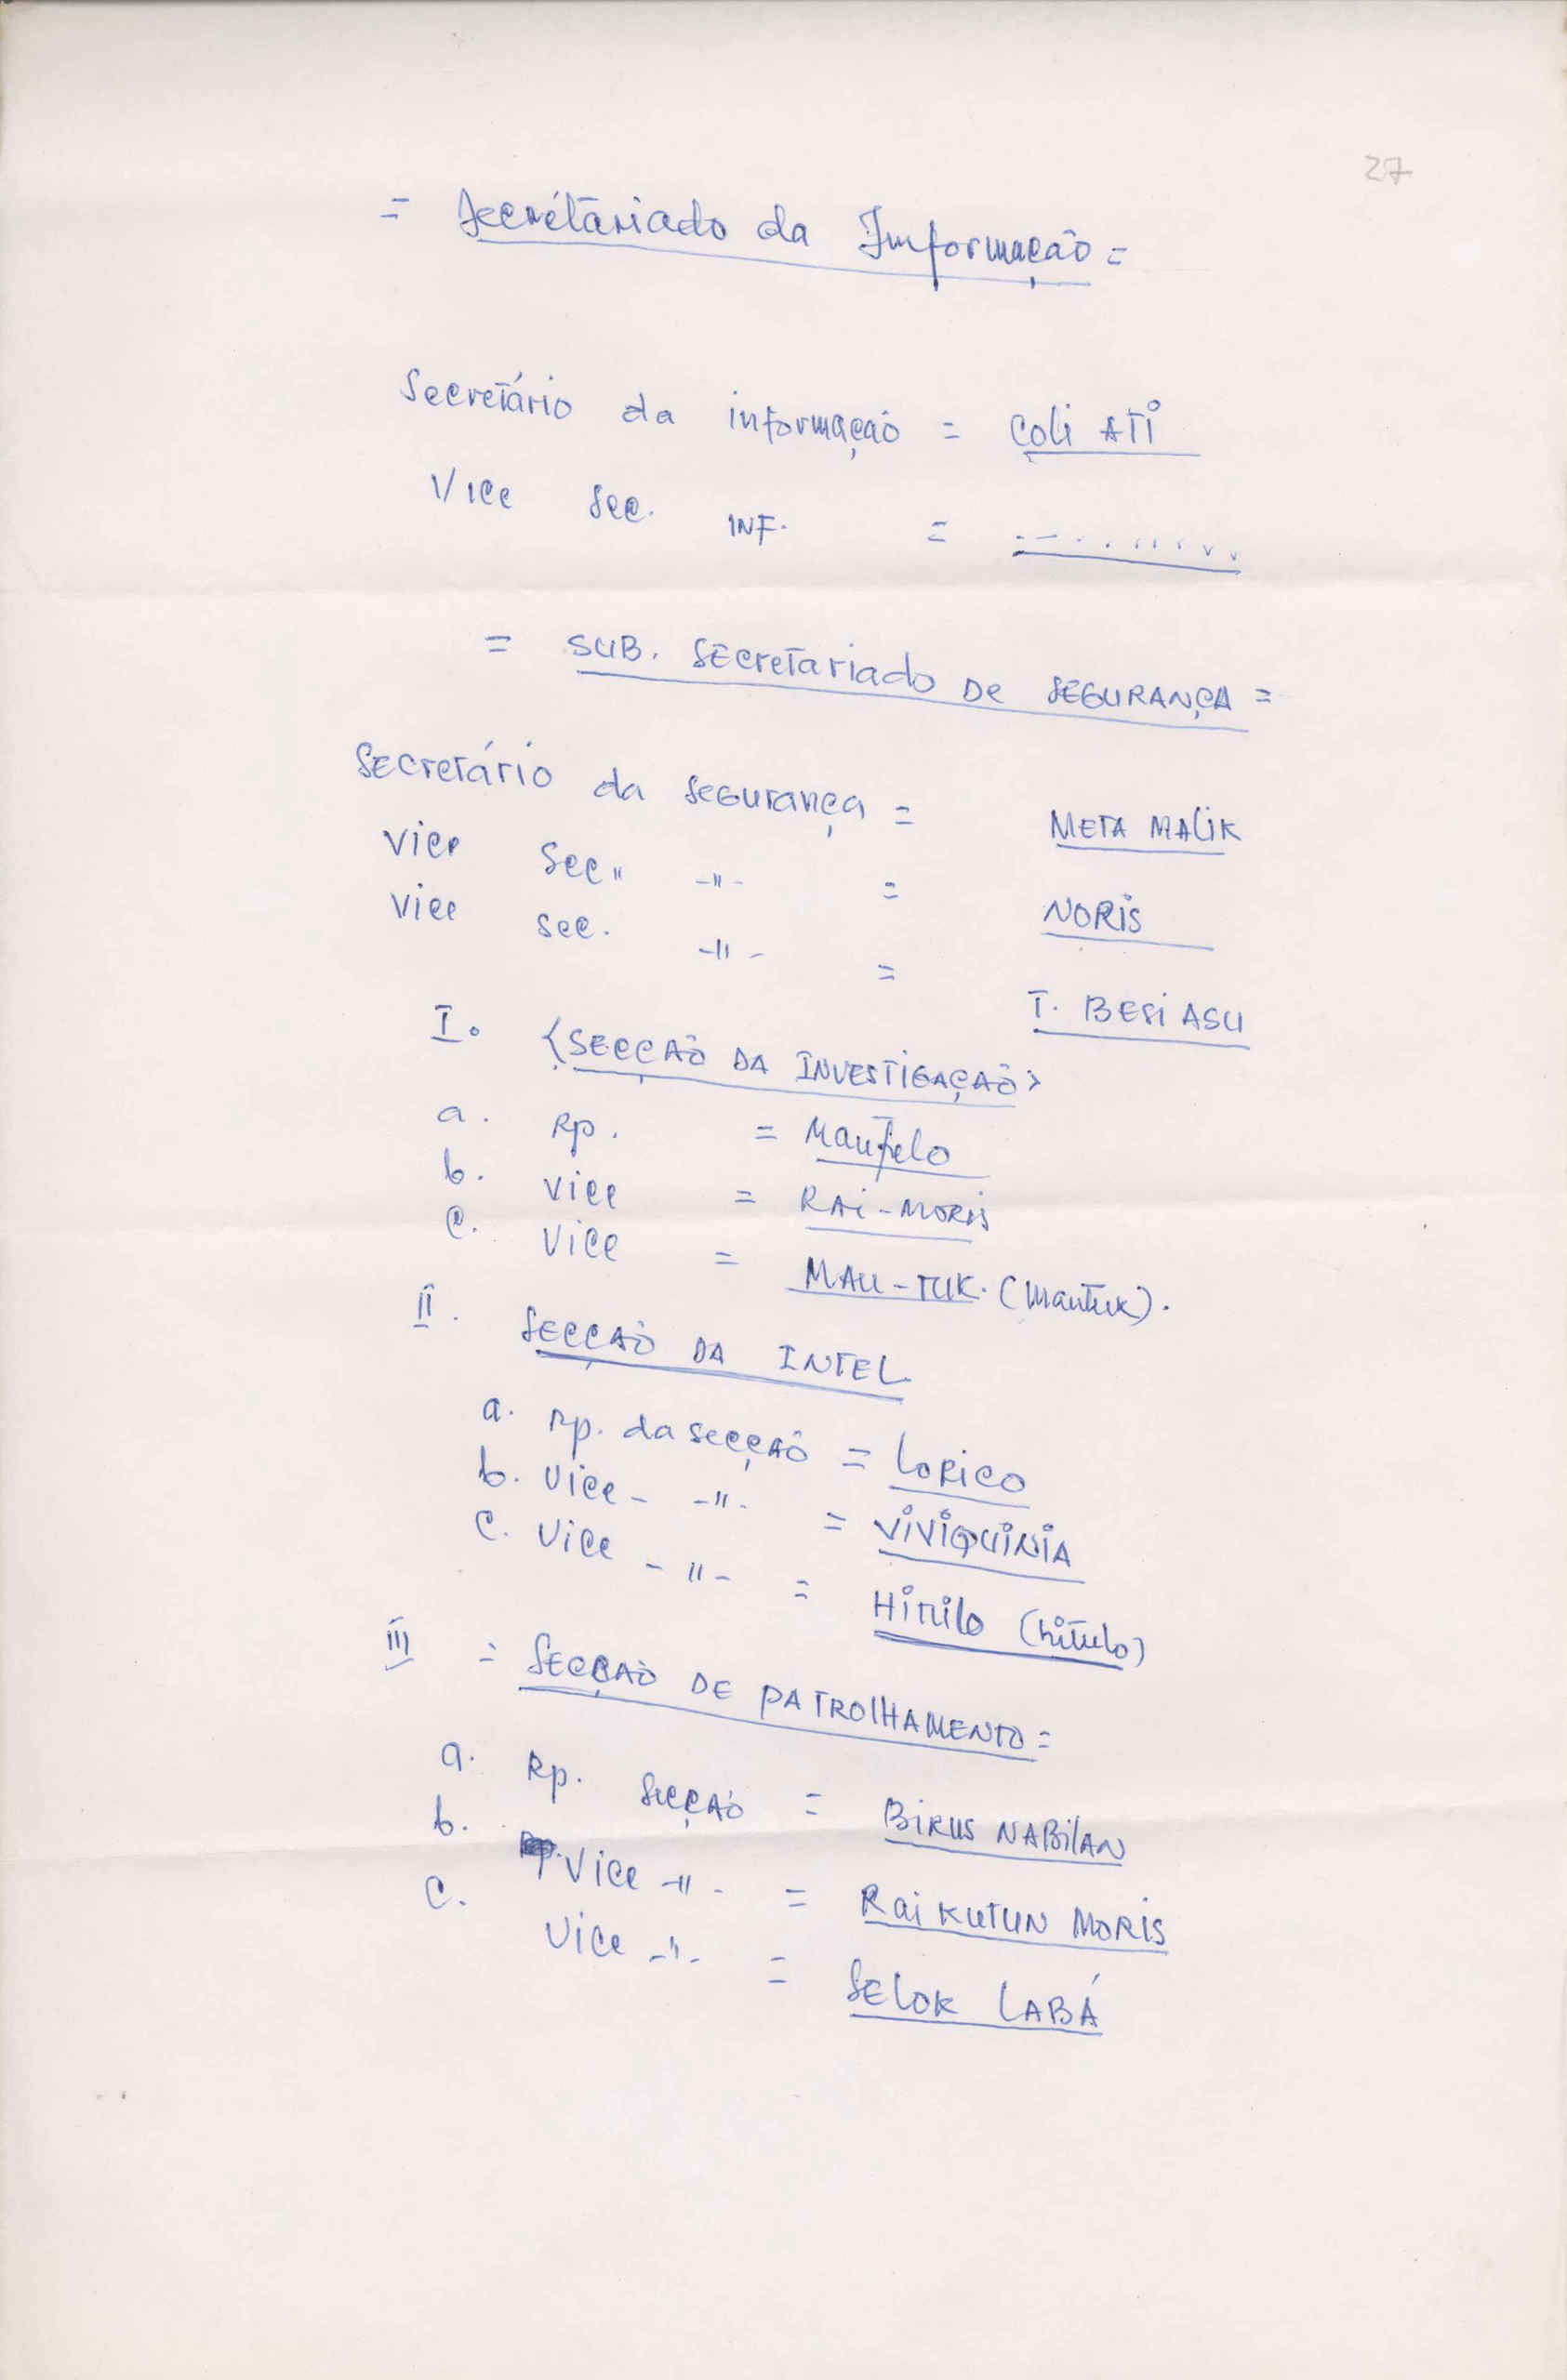 27
= Secrétariado da Imformação =
Secretário da informação = Coli ATi
Vice Sec. INF. = ............
= SUB. SEcretariado De SEGURANÇA =
SEcretário da SeGurança = META MALiK
Vice Sec. -"- = NORiS
Vice sec. -"- = T. BESi ASU
I. <SECÇAÕ DA INVESTIGAÇAÕ>
a. Rp. = Maufelo
b. Vice = RAi-MORiS
c. Vice = MAU-TUK. (Mautuk).
II. SECÇAÕ DA INTEL
a. Rp. da SecçAõ = LoRico
b. Vice- -"- = ViViQUiNiA
c. Vice -"- = Hitulo (hitulo)
III = SECÇAÕ DE PATROlHAMENTO =
a. Rp. SecçAõ = BiRUS NABilAN
b. Vice -"- = Rai KUTUN MORiS
c. Vice -"- = SELOK LABÁ